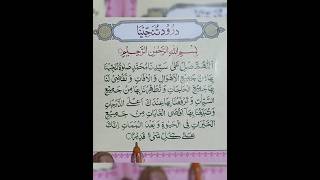 درود تنجینا
بِسْمِ اللّٰهِ الرَّحْمٰنِ الرَّحِيْمِ
اَللّٰهُمَّ صَلِّ عَلٰى سَيِّدِنَا مُحَمَّدٍ صَلٰوةً تُنَجِّيْنَا
بِهَا مِنْ جَمِيْعِ الْاَهْوَالِ وَ الْاٰفَاتِ وَ تَقْضِىْ لَنَا
بِهَا جَمِيْعَ الْحَاجَاتِ وَ تُطَهِّرُنَا بِهَا مِنْ جَمِيْعِ
السَّيِّاٰتِ وَ تَرْفَعُنَا بِهَا عِنْدَكَ اَعْلَى الدَّرَجَاتِ
وَ تُبَلِّغُنَا بِهَا اَقْصَى الْغَايَاتِ مِنْ جَمِيْعِ
الْخَيْرَاتِ فِى الْحَيٰوةِ وَ بَعْدَ الْمَمَاتِ اِنَّكَ
عَلٰى كُلِّ شَىْءٍ قَدِيْرٌ